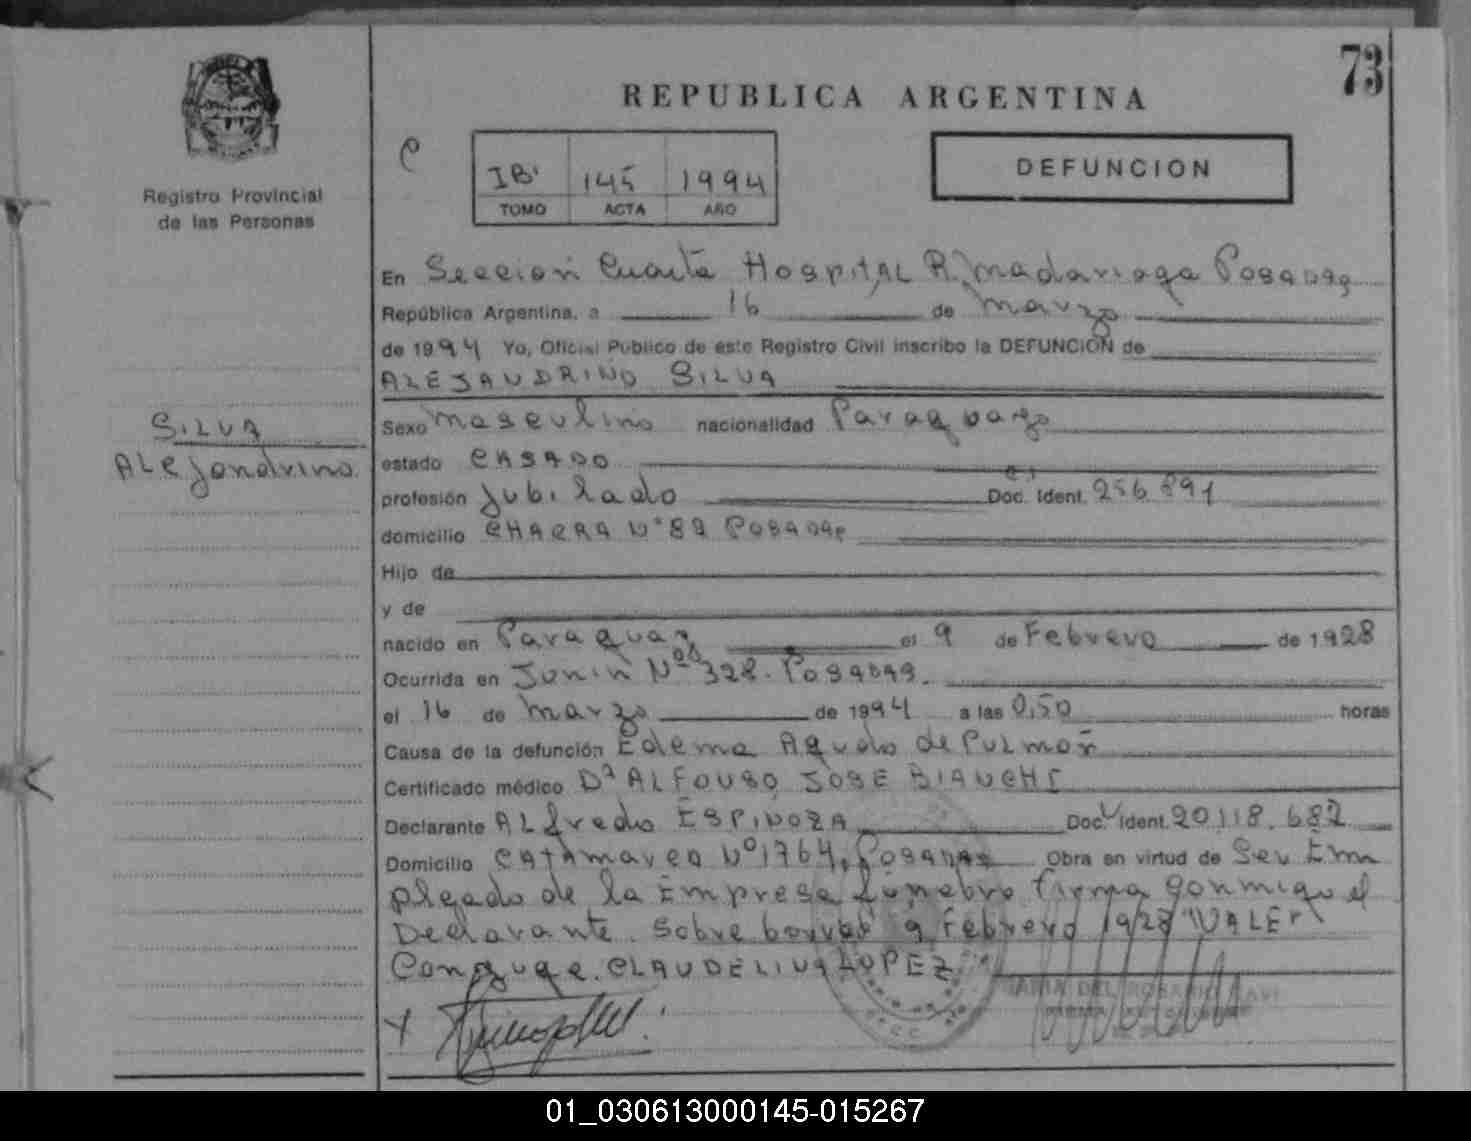 73
REPUBLICA ARGENTINA
DEFUNCION
Registro Provincial
de las Personas
IBº 145 1994
TOMO ACTA AÑO
En Seccion Cuarta Hospital R. Madariaga Posadas
República Argentina, a 16 de Marzo
de 1994 Yo, Oficial Público de este Registro Civil inscribo la DEFUNCION de
ALEJANDRINO SILVA
SILVA
Alejandrino
Sexo Masculino nacionalidad Paraguayo
estado CASADO
profesión Jubilado Doc. Ident. 256.891
domicilio CHACRA Nº 82 Posadas
Hijo de
y de
nacido en Paraguay el 9 de Febrero de 1928
Ocurrida en Junin Nº 328. Posadas.
el 16 de Marzo de 1994 a las 0,50 horas
Causa de la defunción Edema Agudo de Pulmon
Certificado médico Dº ALFONSO JOSE BIANCHI
Declarante Alfredo ESPINOZA Doc. Ident. 20.118.682
Domicilio CATAMARCA Nº 1764, Posadas Obra en virtud de Ser Em
pleado de la Empresa funebre firma conmigo el
Declarante. Sobre borrado 9 Febrero 1928 "VALE"
Conyuge. CLAUDELINA LOPEZ
MARIA DEL ROSARIO
01_030613000145-015267